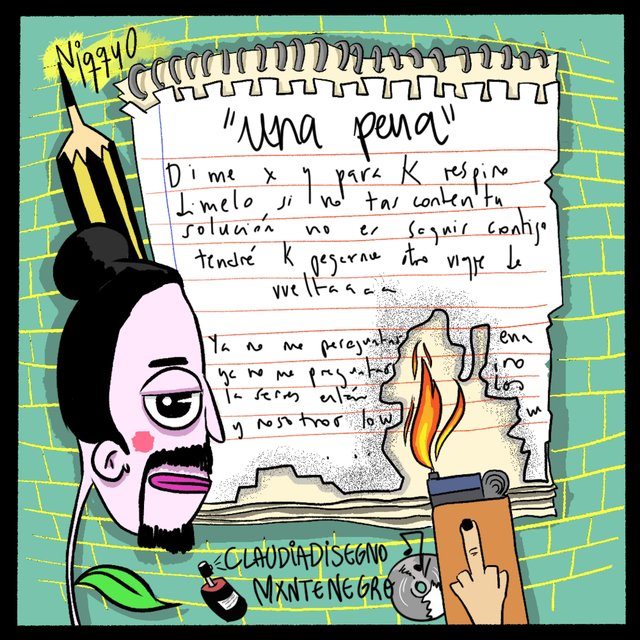 Niggyo
"una pena"
Dime x y para K respiro
Dimelo si no tas contenta
solución no es seguir contigo
tendré K pegarme otro viaje de
vueltaaaa
Ya no me preguntas ena
ya no me preguntas iro
la series están los
y nosotros low w
...
CLAUDIADISEGNO
MXNTENEGRO